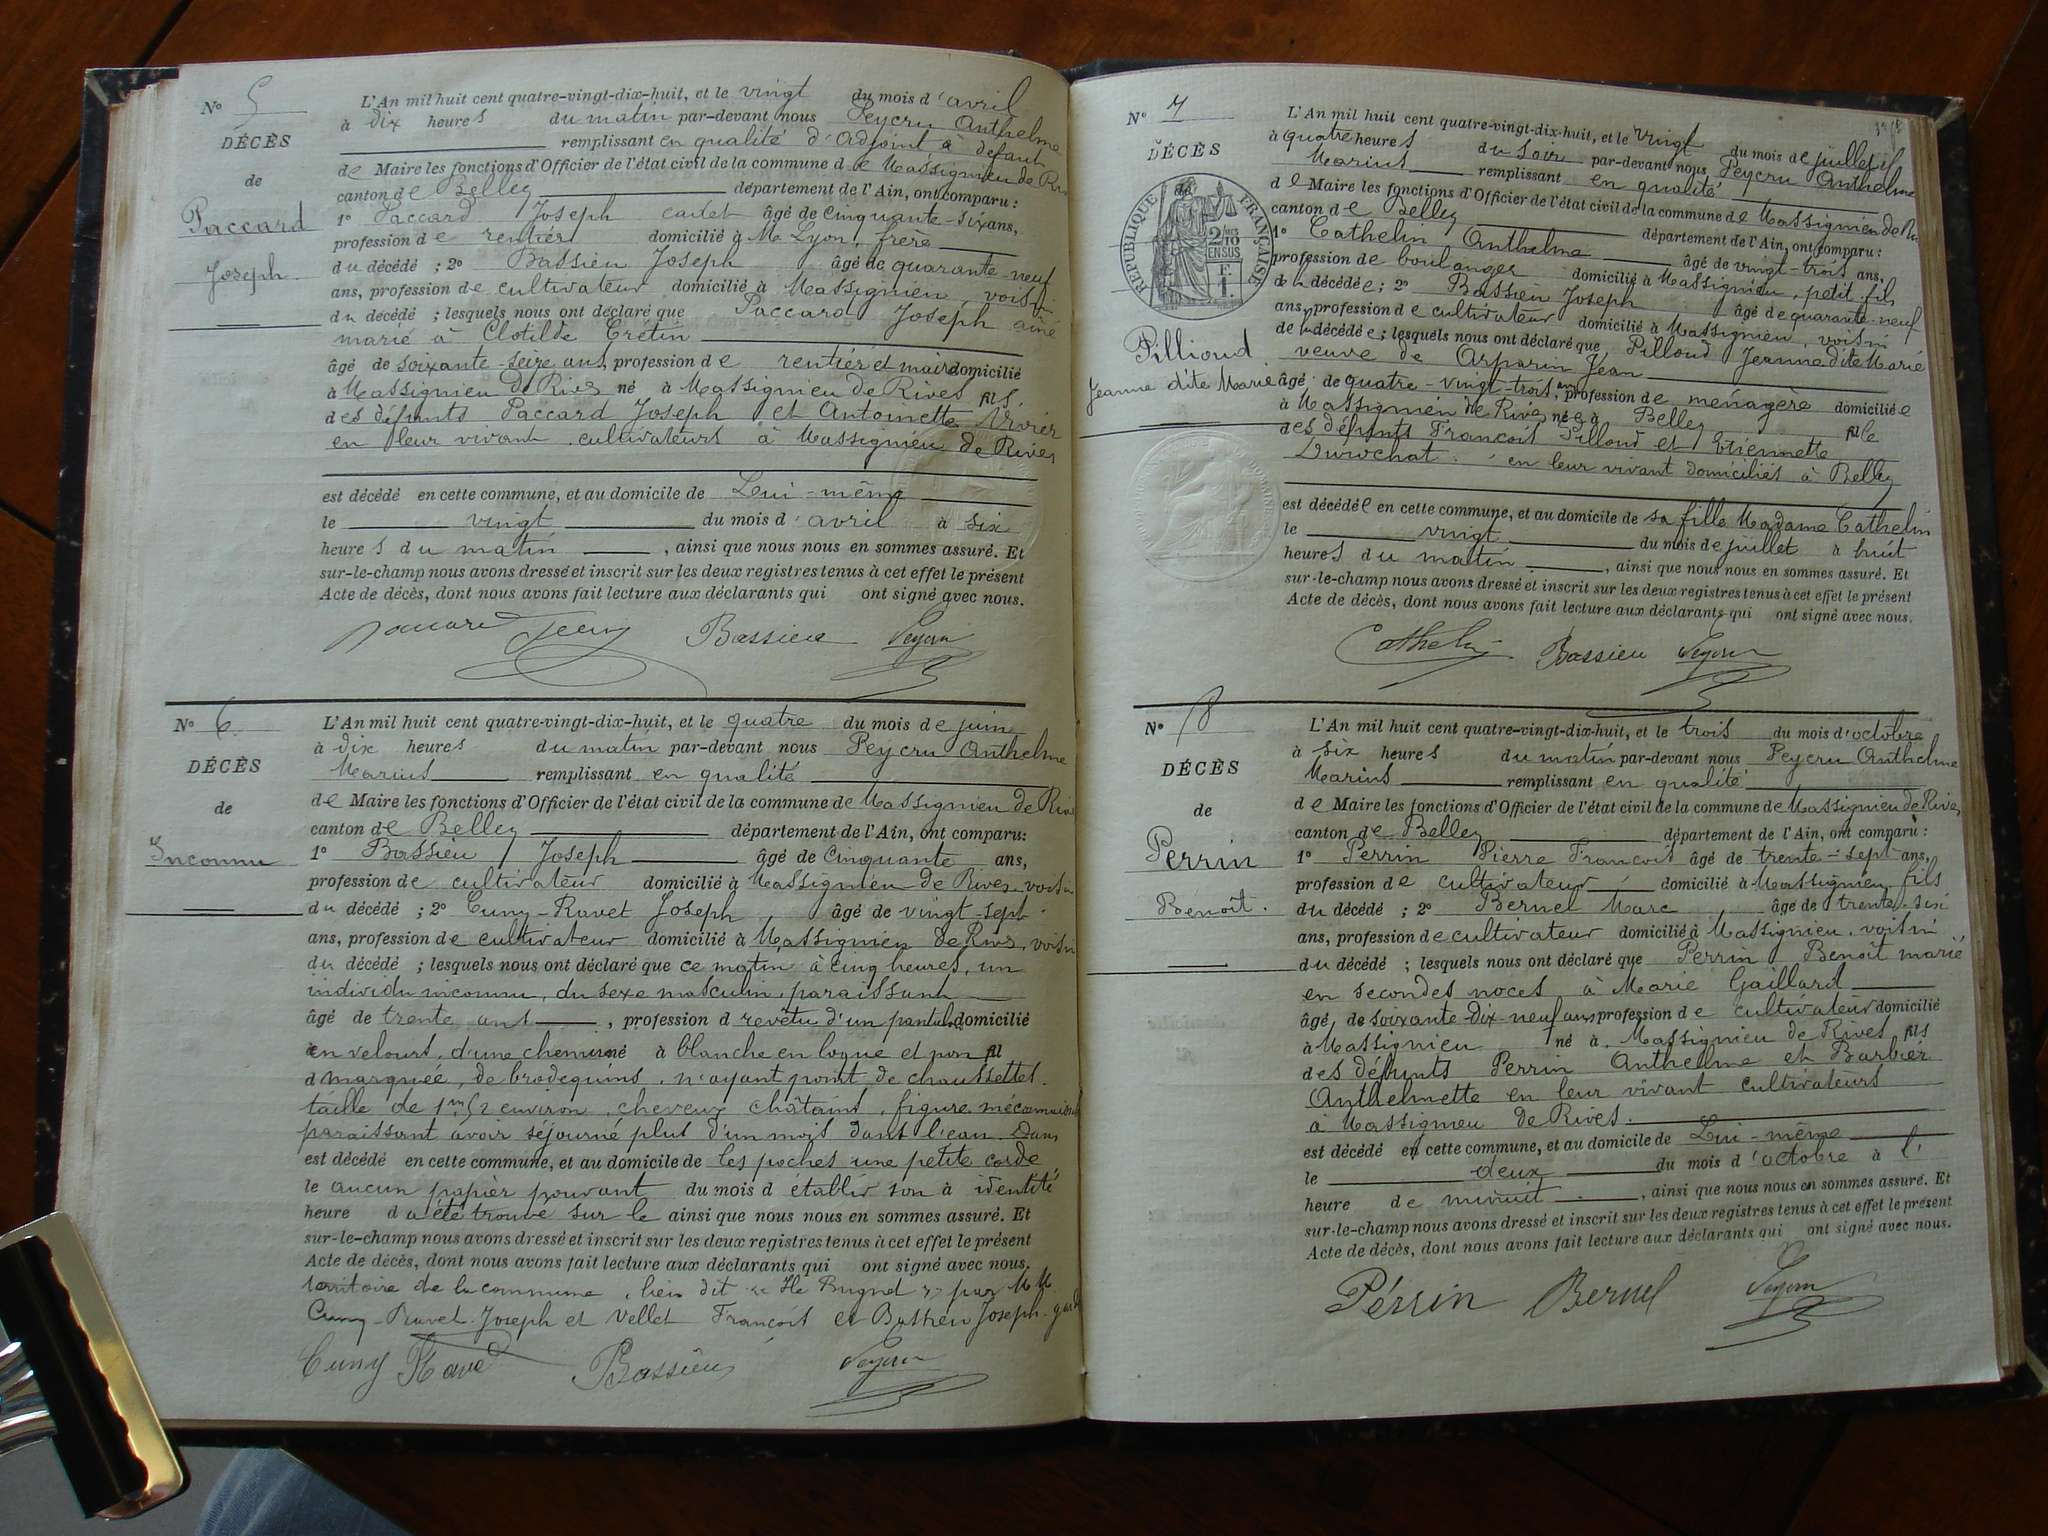 N° 5
DÉCÈS
de
Paccard
Joseph
L'An mil huit cent quatre-vingt-dix-huit, et le vingt du mois d'avril
à dix heures du matin par-devant nous Peycru Anthelme
remplissant en qualité d'Adjoint à défaut
de Maire les fonctions d'Officier de l'état civil de la commune de Massignieu de Rives
canton de Belley département de l'Ain, ont comparu :
1° Paccard Joseph cadet âgé de Cinquante-six ans,
profession de rentier domicilié à Lyon, frère
du décédé ; 2° Bassieu Joseph âgé de quarante-neuf
ans, profession de cultivateur domicilié à Massignieu, voisin
du décédé ; lesquels nous ont déclaré que Paccard Joseph aîné
marié à Clotilde Crétin
âgé de soixante-seize ans, profession de rentier et maire domicilié
à Massignieu de Rives né à Massignieu de Rives fils
des défunts Paccard Joseph et Antoinette Vivier
en leur vivant cultivateurs à Massignieu de Rives
est décédé en cette commune, et au domicile de Lui-même
le vingt du mois d'avril à six
heures du matin, ainsi que nous nous en sommes assuré. Et
sur-le-champ nous avons dressé et inscrit sur les deux registres tenus à cet effet le présent
Acte de décès, dont nous avons fait lecture aux déclarants qui ont signé avec nous.
Paccard Bassieu Peycru
N° 6
DÉCÈS
de
Inconnu
L'An mil huit cent quatre-vingt-dix-huit, et le quatre du mois de juin
à dix heures du matin par-devant nous Peycru Anthelme
Marius remplissant en qualité
de Maire les fonctions d'Officier de l'état civil de la commune de Massignieu de Rives
canton de Belley département de l'Ain, ont comparu :
1° Bassieu Joseph âgé de Cinquante ans,
profession de cultivateur domicilié à Massignieu de Rives, voisin
du décédé ; 2° Cuny-Ravet Joseph âgé de vingt-sept
ans, profession de cultivateur domicilié à Massignieu de Rives, voisin
du décédé ; lesquels nous ont déclaré que ce matin à cinq heures, un
individu inconnu, du sexe masculin, paraissant
âgé de trente ans, profession d revêtu d'un pantalon domicilié
en velours, d'une chemise né à blanche en loque et non fil
d marquée, de brodequins, n'ayant point de chaussettes.
taille de 1m52 environ, cheveux châtains, figure méconnaissable
paraissant avoir séjourné plus d'un mois dans l'eau. Dans
est décédé en cette commune, et au domicile de les poches une petite corde
le aucun papier pouvant du mois d établir son à identité
heure d a été trouvé sur le ainsi que nous nous en sommes assuré. Et
sur-le-champ nous avons dressé et inscrit sur les deux registres tenus à cet effet le présent
Acte de décès, dont nous avons fait lecture aux déclarants qui ont signé avec nous.
territoire de la commune, lieu dit « Ile Bugnd » par MM.
Cuny-Ravet Joseph et Vellet François et Bassieu Joseph garde
Cuny Ravet Bassieu Peycru
N° 7
DÉCÈS
de
RÉPUBLIQUE FRANÇAISE
2/10 EN SUS
Pilliond
Jeanne dite Marie
L'An mil huit cent quatre-vingt-dix-huit, et le vingt du mois de juillet
à quatre heures du soir par-devant nous Peycru Anthelme
Marius remplissant en qualité
de Maire les fonctions d'Officier de l'état civil de la commune de Massignieu de Rives
canton de Belley département de l'Ain, ont comparu :
1° Cathelin Anthelme âgé de vingt-trois ans,
profession de boulanger domicilié à Massignieu, petit-fils
de la décédée ; 2° Bassieu Joseph âgé de quarante-neuf
ans, profession de cultivateur domicilié à Massignieu, voisin
de la décédée ; lesquels nous ont déclaré que Pilloud Jeanne dite Marie
veuve de Arparin Jean
âgé de quatre-vingt-trois ans, profession de ménagère domiciliée
à Massignieu de Rives née à Belley fille
des défunts François Pilloud et Etiennette
Durochat en leur vivant domiciliés à Belley
est décédée en cette commune, et au domicile de sa fille Madame Cathelin
le vingt du mois de juillet à huit
heures du matin, ainsi que nous nous en sommes assuré. Et
sur-le-champ nous avons dressé et inscrit sur les deux registres tenus à cet effet le présent
Acte de décès, dont nous avons fait lecture aux déclarants qui ont signé avec nous.
Cathelin Bassieu Peycru
N° 8
DÉCÈS
de
Perrin
Benoît.
L'An mil huit cent quatre-vingt-dix-huit, et le trois du mois d'octobre
à six heures du matin par-devant nous Peycru Anthelme
Marius remplissant en qualité
de Maire les fonctions d'Officier de l'état civil de la commune de Massignieu de Rives
canton de Belley département de l'Ain, ont comparu :
1° Perrin Pierre François âgé de trente-sept ans,
profession de cultivateur domicilié à Massignieu, fils
du décédé ; 2° Bernel Marc âgé de trente-six
ans, profession de cultivateur domicilié à Massignieu, voisin
du décédé ; lesquels nous ont déclaré que Perrin Benoît marié
en secondes noces à Marie Gaillard
âgé de soixante-dix-neuf ans profession de cultivateur domicilié
à Massignieu né à Massignieu de Rives fils
des défunts Perrin Anthelme et Barbier
Anthelmette en leur vivant cultivateurs
à Massignieu de Rives.
est décédé en cette commune, et au domicile de Lui-même
le deux du mois d'octobre à l'
heure de minuit, ainsi que nous nous en sommes assuré. Et
sur-le-champ nous avons dressé et inscrit sur les deux registres tenus à cet effet le présent
Acte de décès, dont nous avons fait lecture aux déclarants qui ont signé avec nous.
Pérrin Bernel Peycru